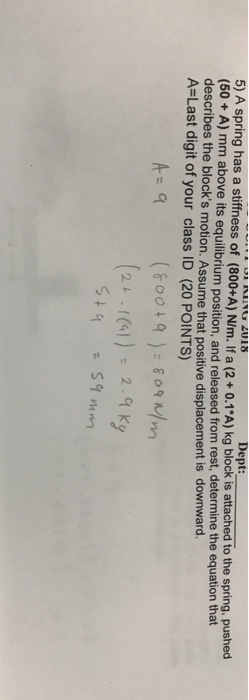 SPRING 2018
Dept:
5) A spring has a stiffness of (800+A) N/m. If a (2 + 0.1*A) kg block is attached to the spring, pushed
(50 + A) mm above its equilibrium position, and released from rest, determine the equation that
describes the block's motion. Assume that positive displacement is downward.
A=Last digit of your class ID (20 POINTS)
A = 9 (800+9) = 809 N/m
(2+.1(9)) = 2.9 kg
5+9 = 59 mm